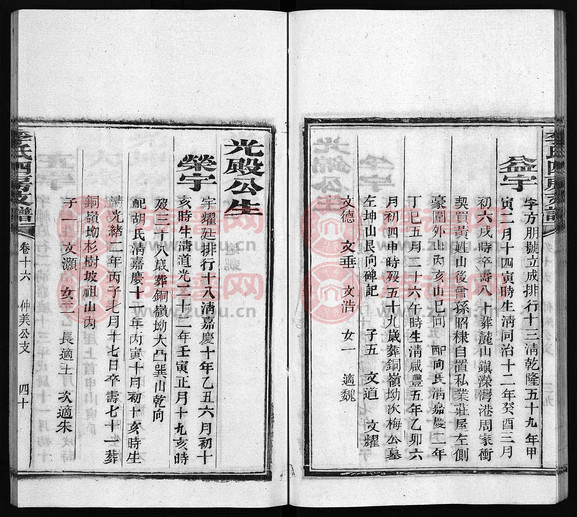 益宇
字方朋號立成排行十三清乾隆五十九年甲
寅二月十四寅時生清同治十二年癸酉三月
初六戌時卒壽八十葬麓山鎮濴灣港周家衝
契買黃姓山後曾孫昭棣自置私業莊屋左側
豪圍外山丙亥山巳向 配向氏清嘉慶二年
丁巳五月二十六午時生清咸豐五年乙卯六
月初四申時歿五十九歲葬銅嶺坳次梅公墓
左坤山艮向碑記 子五 文道 文耀
文德 文垂 文浩 女一 適魏
光殿公生
榮宇
字耀廷排行十八清嘉慶十年乙丑六月初十
亥時生清道光二十二年壬寅正月十九亥時
歿三十八歲葬銅嶺坳大凸巽山乾向
配胡氏清嘉慶十一年丙寅十月初十亥時生
清光緒二年丙子七月十七日卒壽七十一葬
銅嶺坳杉樹坡祖山內
子一 文灝 女三 長適王 次適朱
李氏四房支譜
卷十六 仲美公支
四十